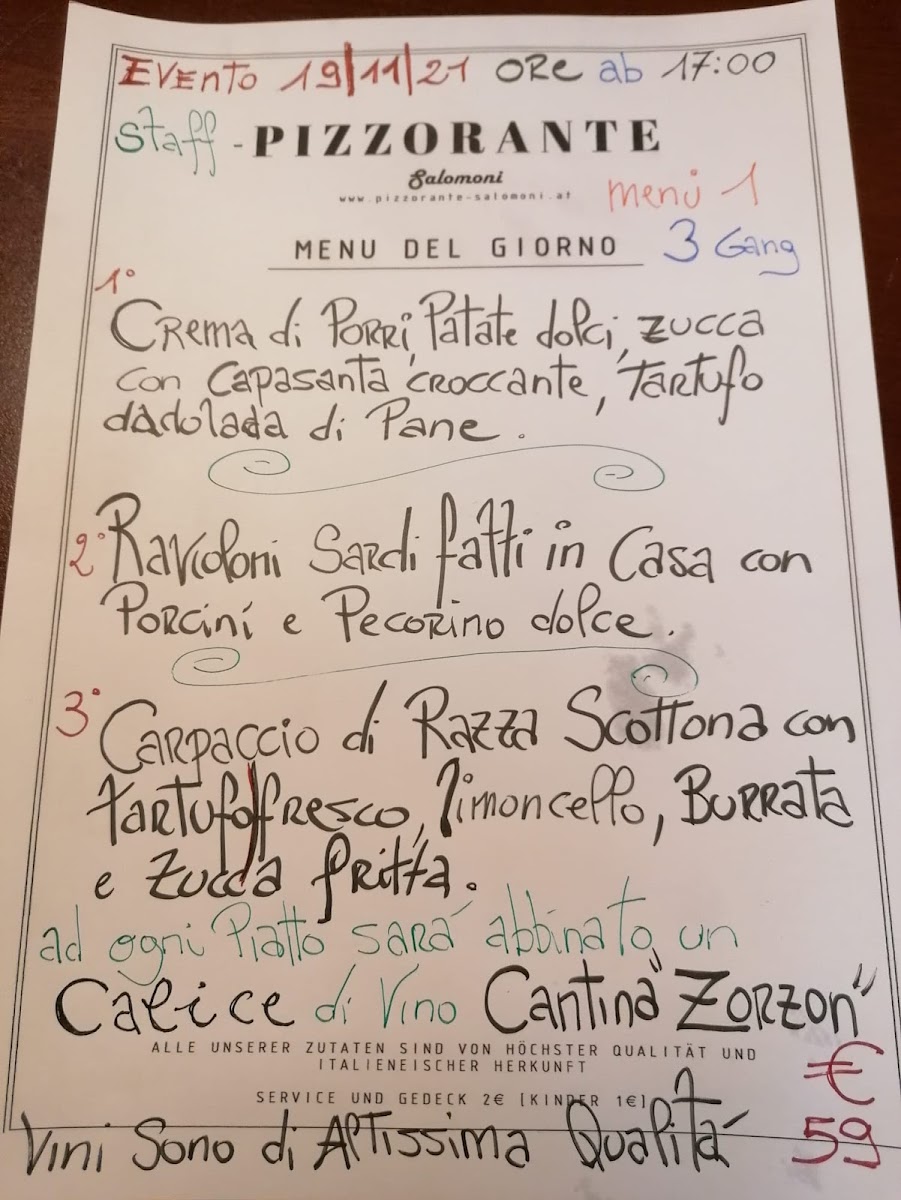 EVENTO 19/11/21 ORE ab 17:00
Staff - PIZZORANTE
Salomoni
www.pizzorante-salomoni.at
menù 1
MENU DEL GIORNO
3 Gang
1°
CREMA di PORRI, Patate dolci, zucca
con Capasanta croccante, TARTUFO
dadolada di Pane.
2° Ravioloni Sardi fatti in Casa con
Porcini e Pecorino dolce.
3° CARPACCIO di RAZZA Scottona con
TARTUFO fresco, limoncello, BURRATA
e Zucca fritta.
ad ogni Piatto sarà abbinato un
Calice di Vino Cantina "ZORZON"
ALLE UNSERER ZUTATEN SIND VON HÖCHSTER QUALITÄT UND
ITALIENEISCHER HERKUNFT
€
SERVICE UND GEDECK 2€ [KINDER 1€]
Vini Sono di Altissima Qualità
59